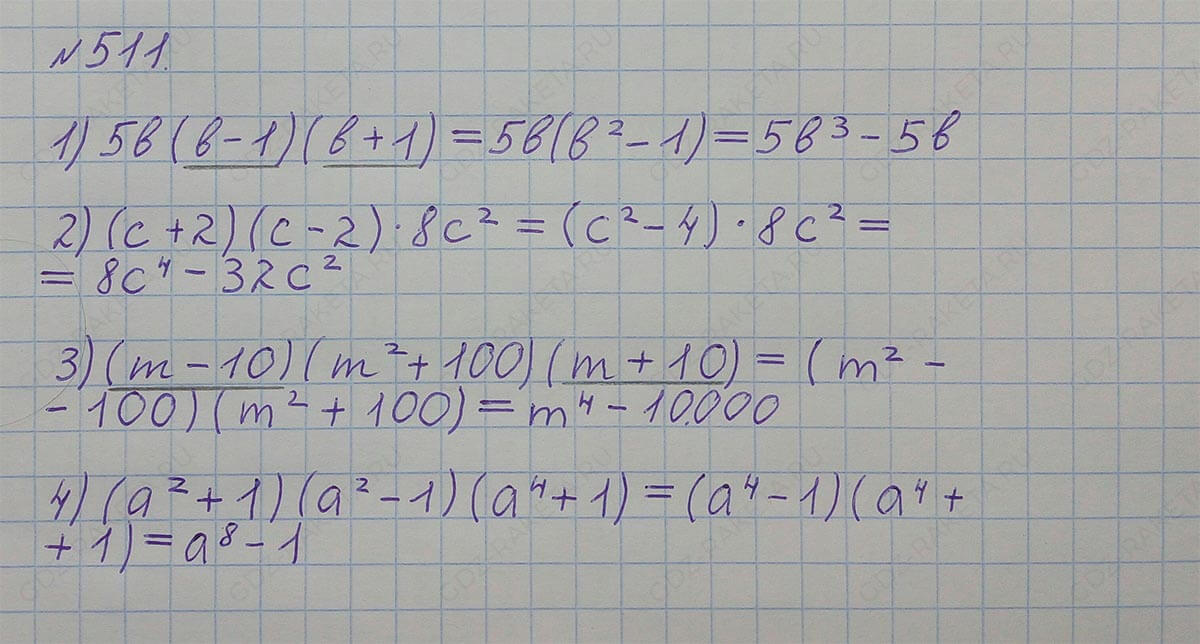 №511.
1) 5в(в-1)(в+1)=5в(в²-1)=5в³-5в
2) (c+2)(c-2)·8c²=(c²-4)·8c²=
= 8c⁴-32c²
3) (m-10)(m²+100)(m+10)=(m²-
-100)(m²+100)=m⁴-10.000
4) (a²+1)(a²-1)(a⁴+1)=(a⁴-1)(a⁴+
+1)=a⁸-1
GDZ-RAKETA.RU